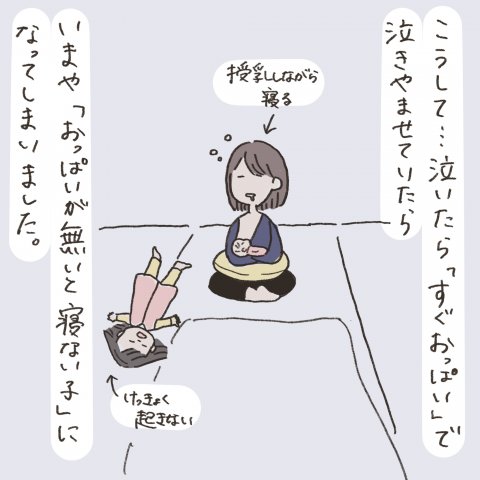 こうして…泣いたら「すぐおっぱい」で
泣きやませていたら
授乳しながら
寝る
いまや「おっぱいが無いと寝ない子」に
なってしまいました。
けっきょく
起きない